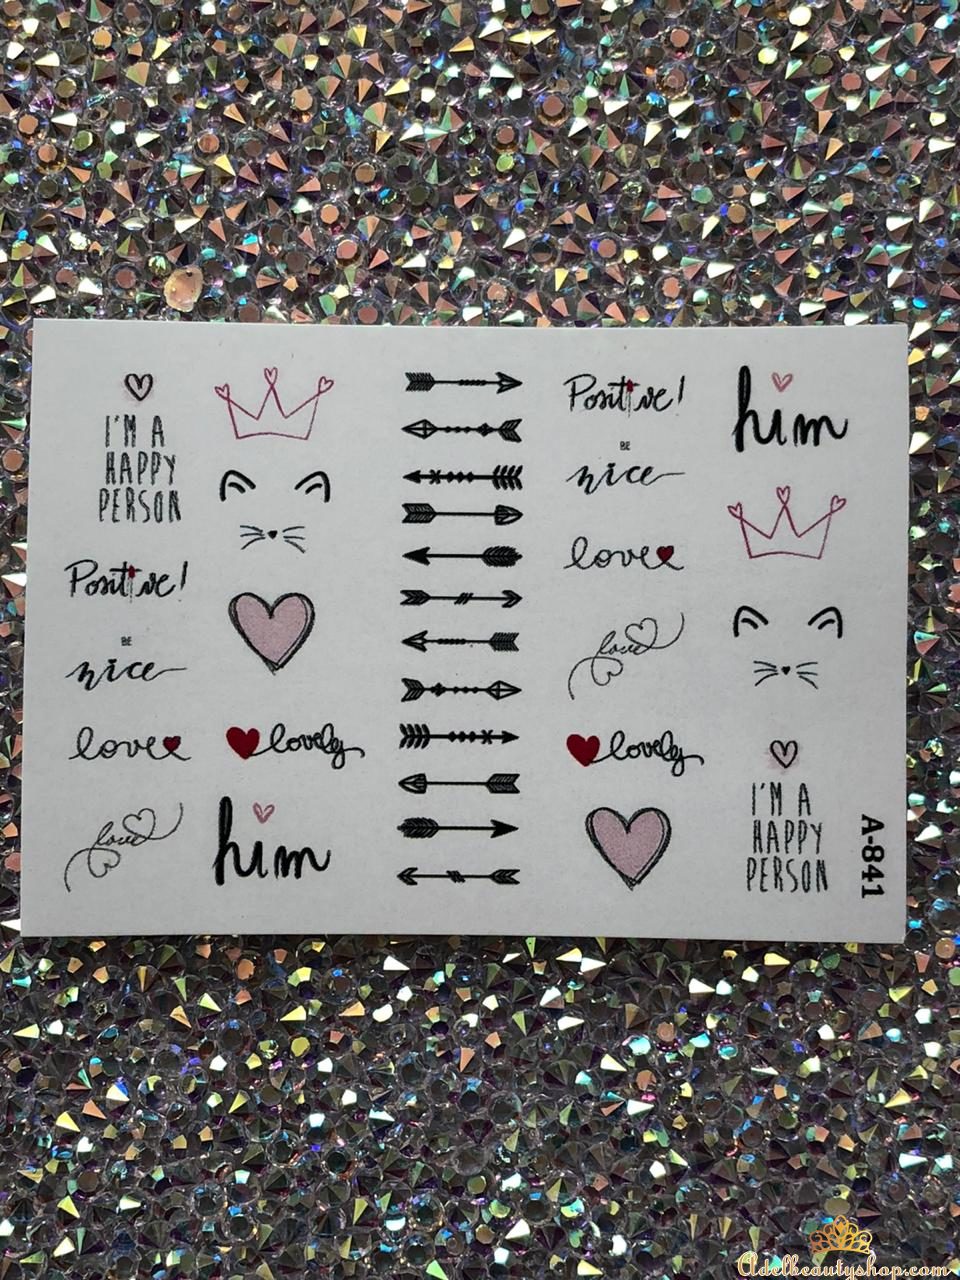 I'M A
HAPPY
PERSON
Positive!
BE
nice
love
love
lovely
him
Positive!
BE
nice
love
love
lovely
him
I'M A
HAPPY
PERSON
A-841
Adelbeautyshop.com